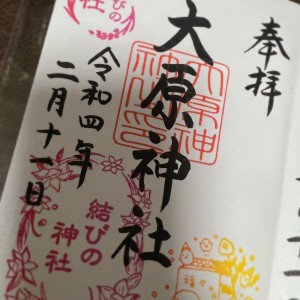 奉拝
大原神社
令和四年
二月十一日
結びの
神社
びの
社